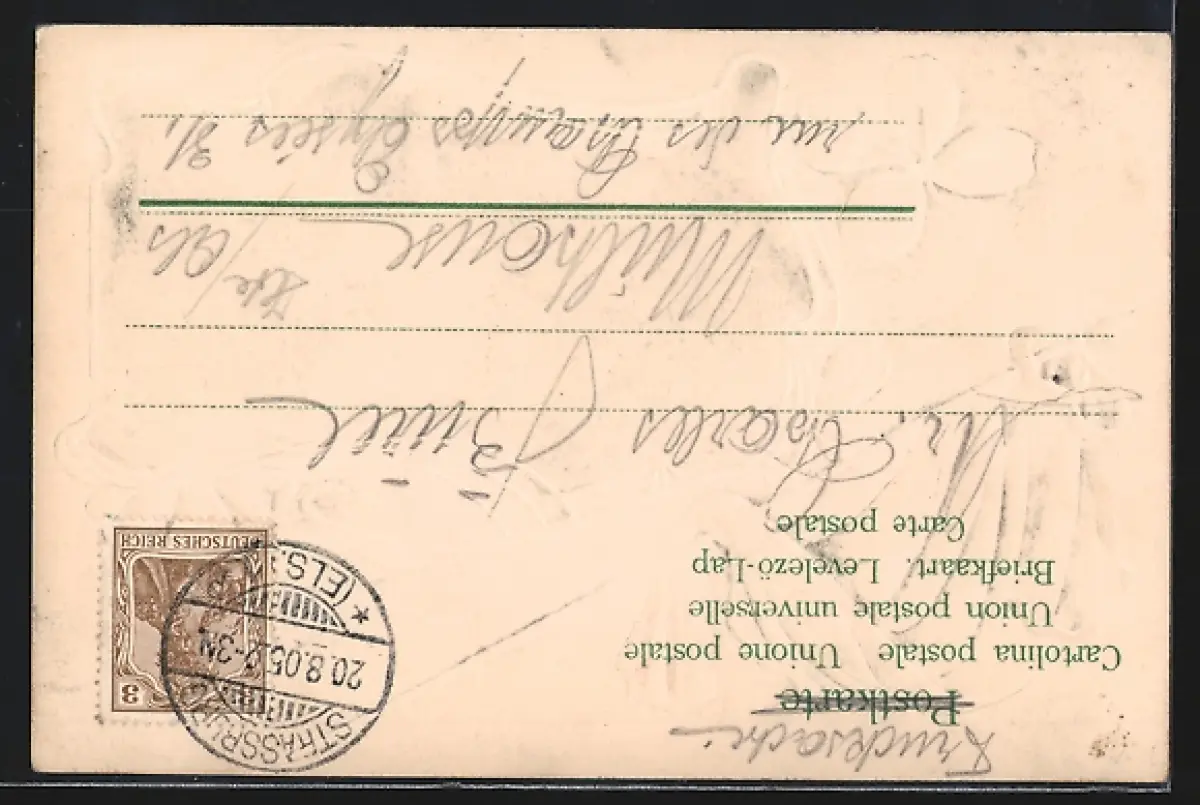 Drucksache
Postkarte
Cartolina postale Unione postale
Union postale universelle
Briefkaart. Levelező-Lap
Carte postale
3
DEUTSCHES REICH
STRASSBURG
20.8.05.2-3N
* (ELS.)
Mr. Charles Büel
Mülhouse
rue des Champs Elysées 31,